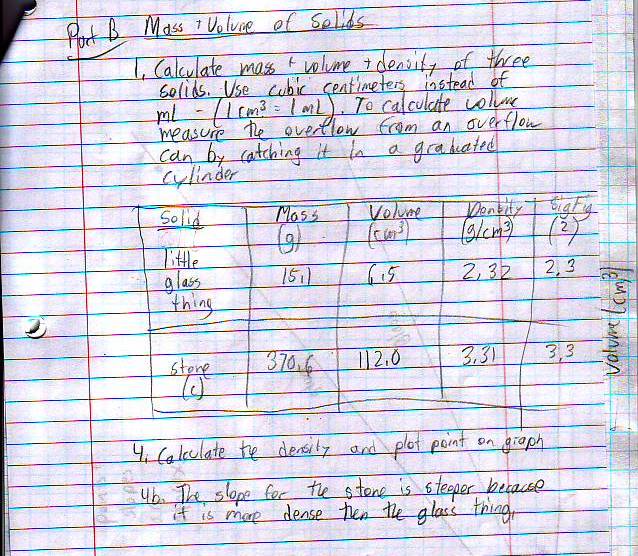 Part B Mass + Volume of Solids
1. Calculate mass + volume + density of three
solids. Use cubic centimeters instead of
ml - (1 cm³ = 1 mL). To calculate volume
measure the overflow from an overflow
can by catching it in a graduated
cylinder
Solid Mass (g) Volume (cm³) Density (g/cm³) Sig Fig (2)
little glass thing 15,1 6,5 2,32 2,3
stone (c) 370,6 112,0 3,31 3,3
volume (cm³)
4. Calculate the density and plot point on graph
4b. The slope for the stone is steeper because
it is more dense then the glass thing.